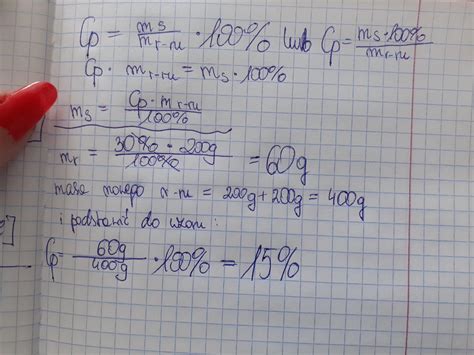 Cp = ms/mr-ru · 100% lub Cp = ms·100%/mr-ru
Cp · mr-ru = ms · 100%
ms = Cp · mr-ru/100%
mr = 30% · 200g/100% = 60g
masa nowego r-ru = 200g + 200g = 400g
i podstawić do wzoru:
Cp = 60g/400g · 100% = 15%